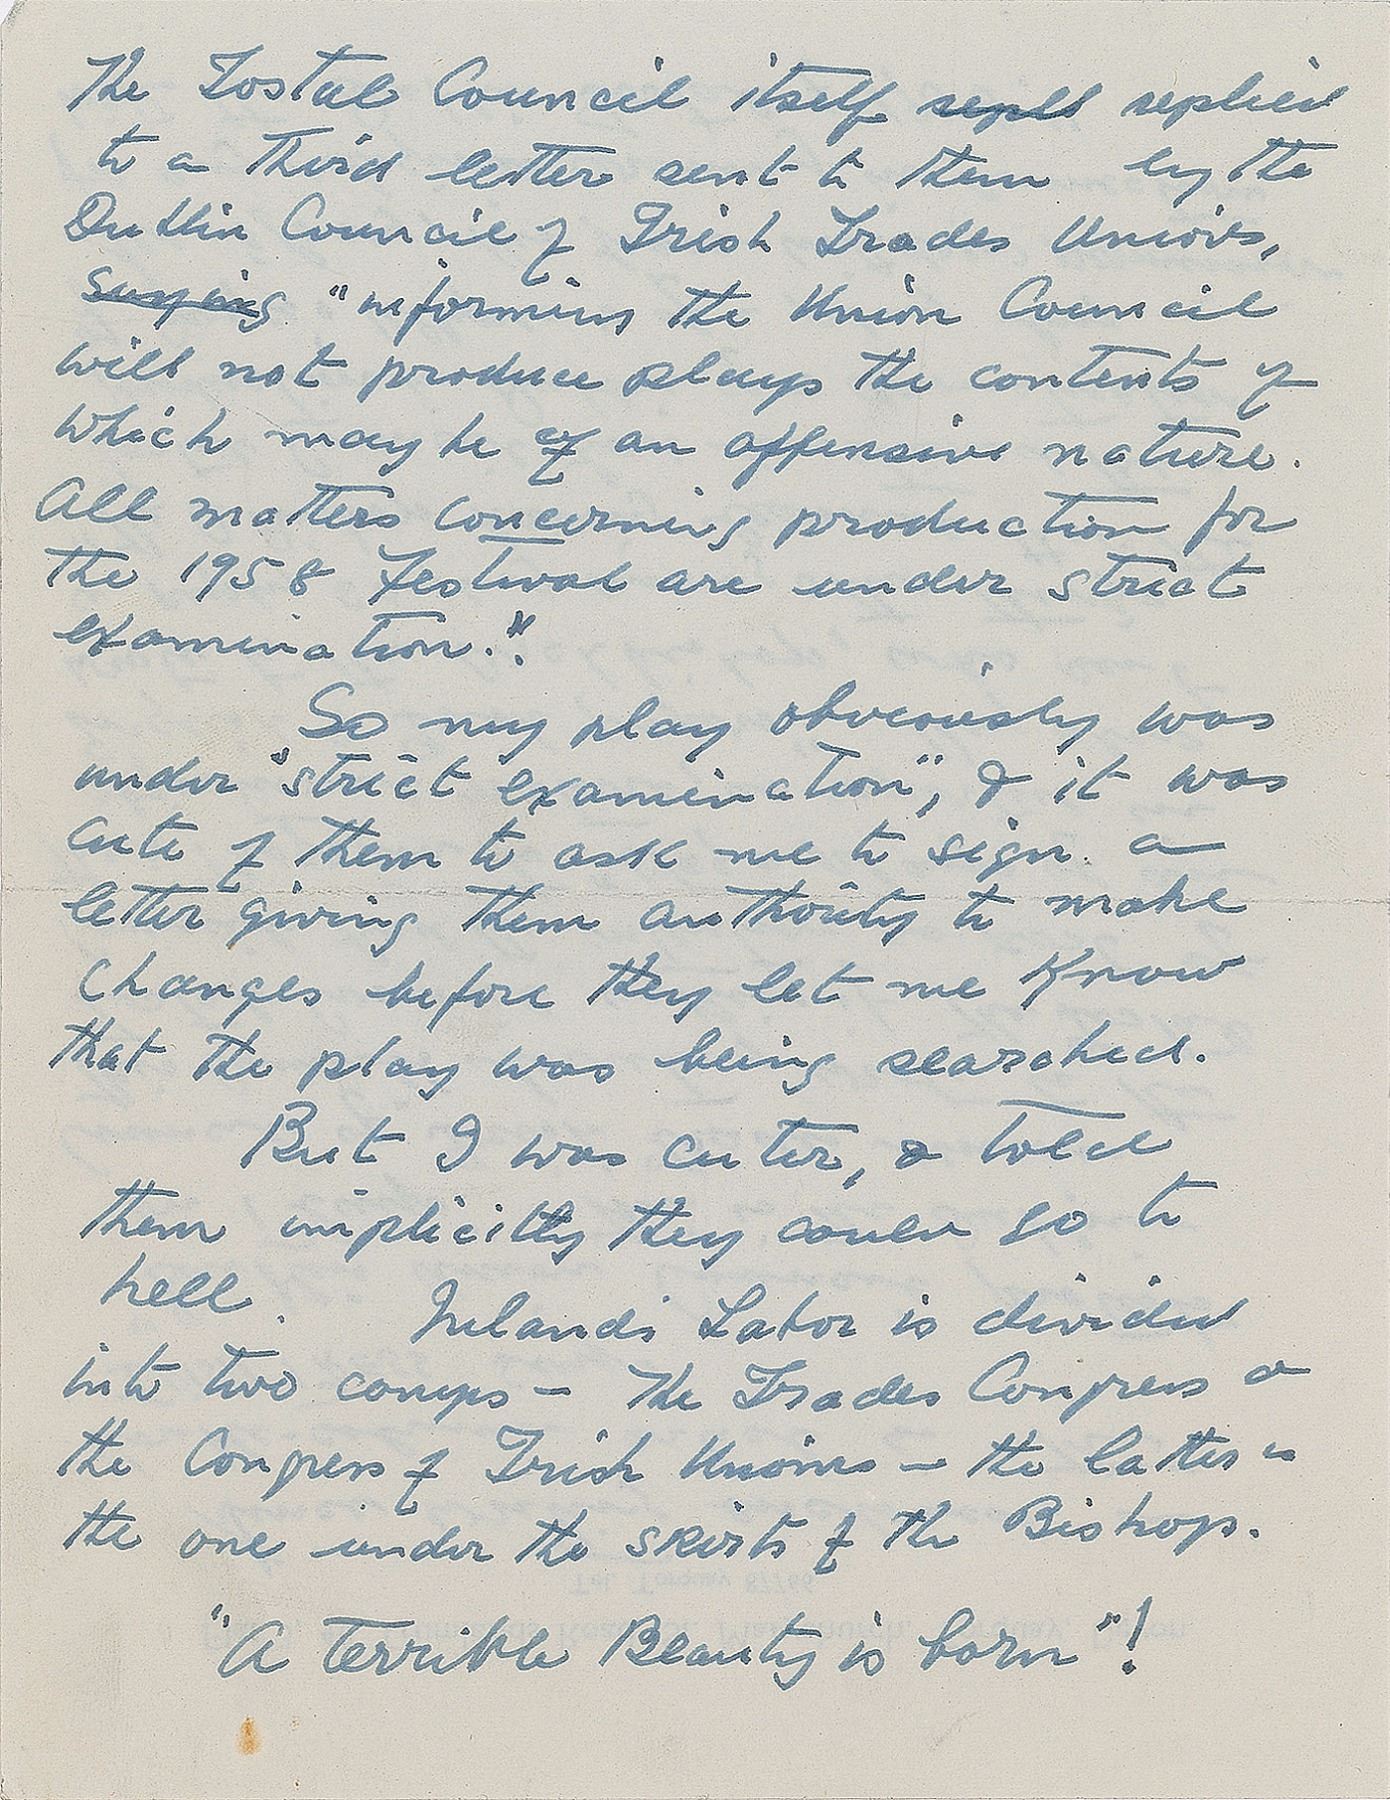 The Tostal Council itself repll replied
to a third letter sent to them by the
Dublin Council of Irish Trades Unions,
saying "informing the Union Council
will not produce plays the contents of
which may be of an offensive nature.
All matters concerning production for
the 1958 Festival are under strict
examination.".
So my play obviously was
under "strict examination", & it was
cute of them to ask me to sign a
letter giving them authority to make
changes before they let me know
that the play was being searched.
But I was cuter, & told
them implicitly they could go to
hell. Irelands Labor is divided
into two camps – The Trades Congress &
the Congress of Irish Unions – the latter is
the one under the skirts of the Bishop.
"A Terrible Beauty is born"!